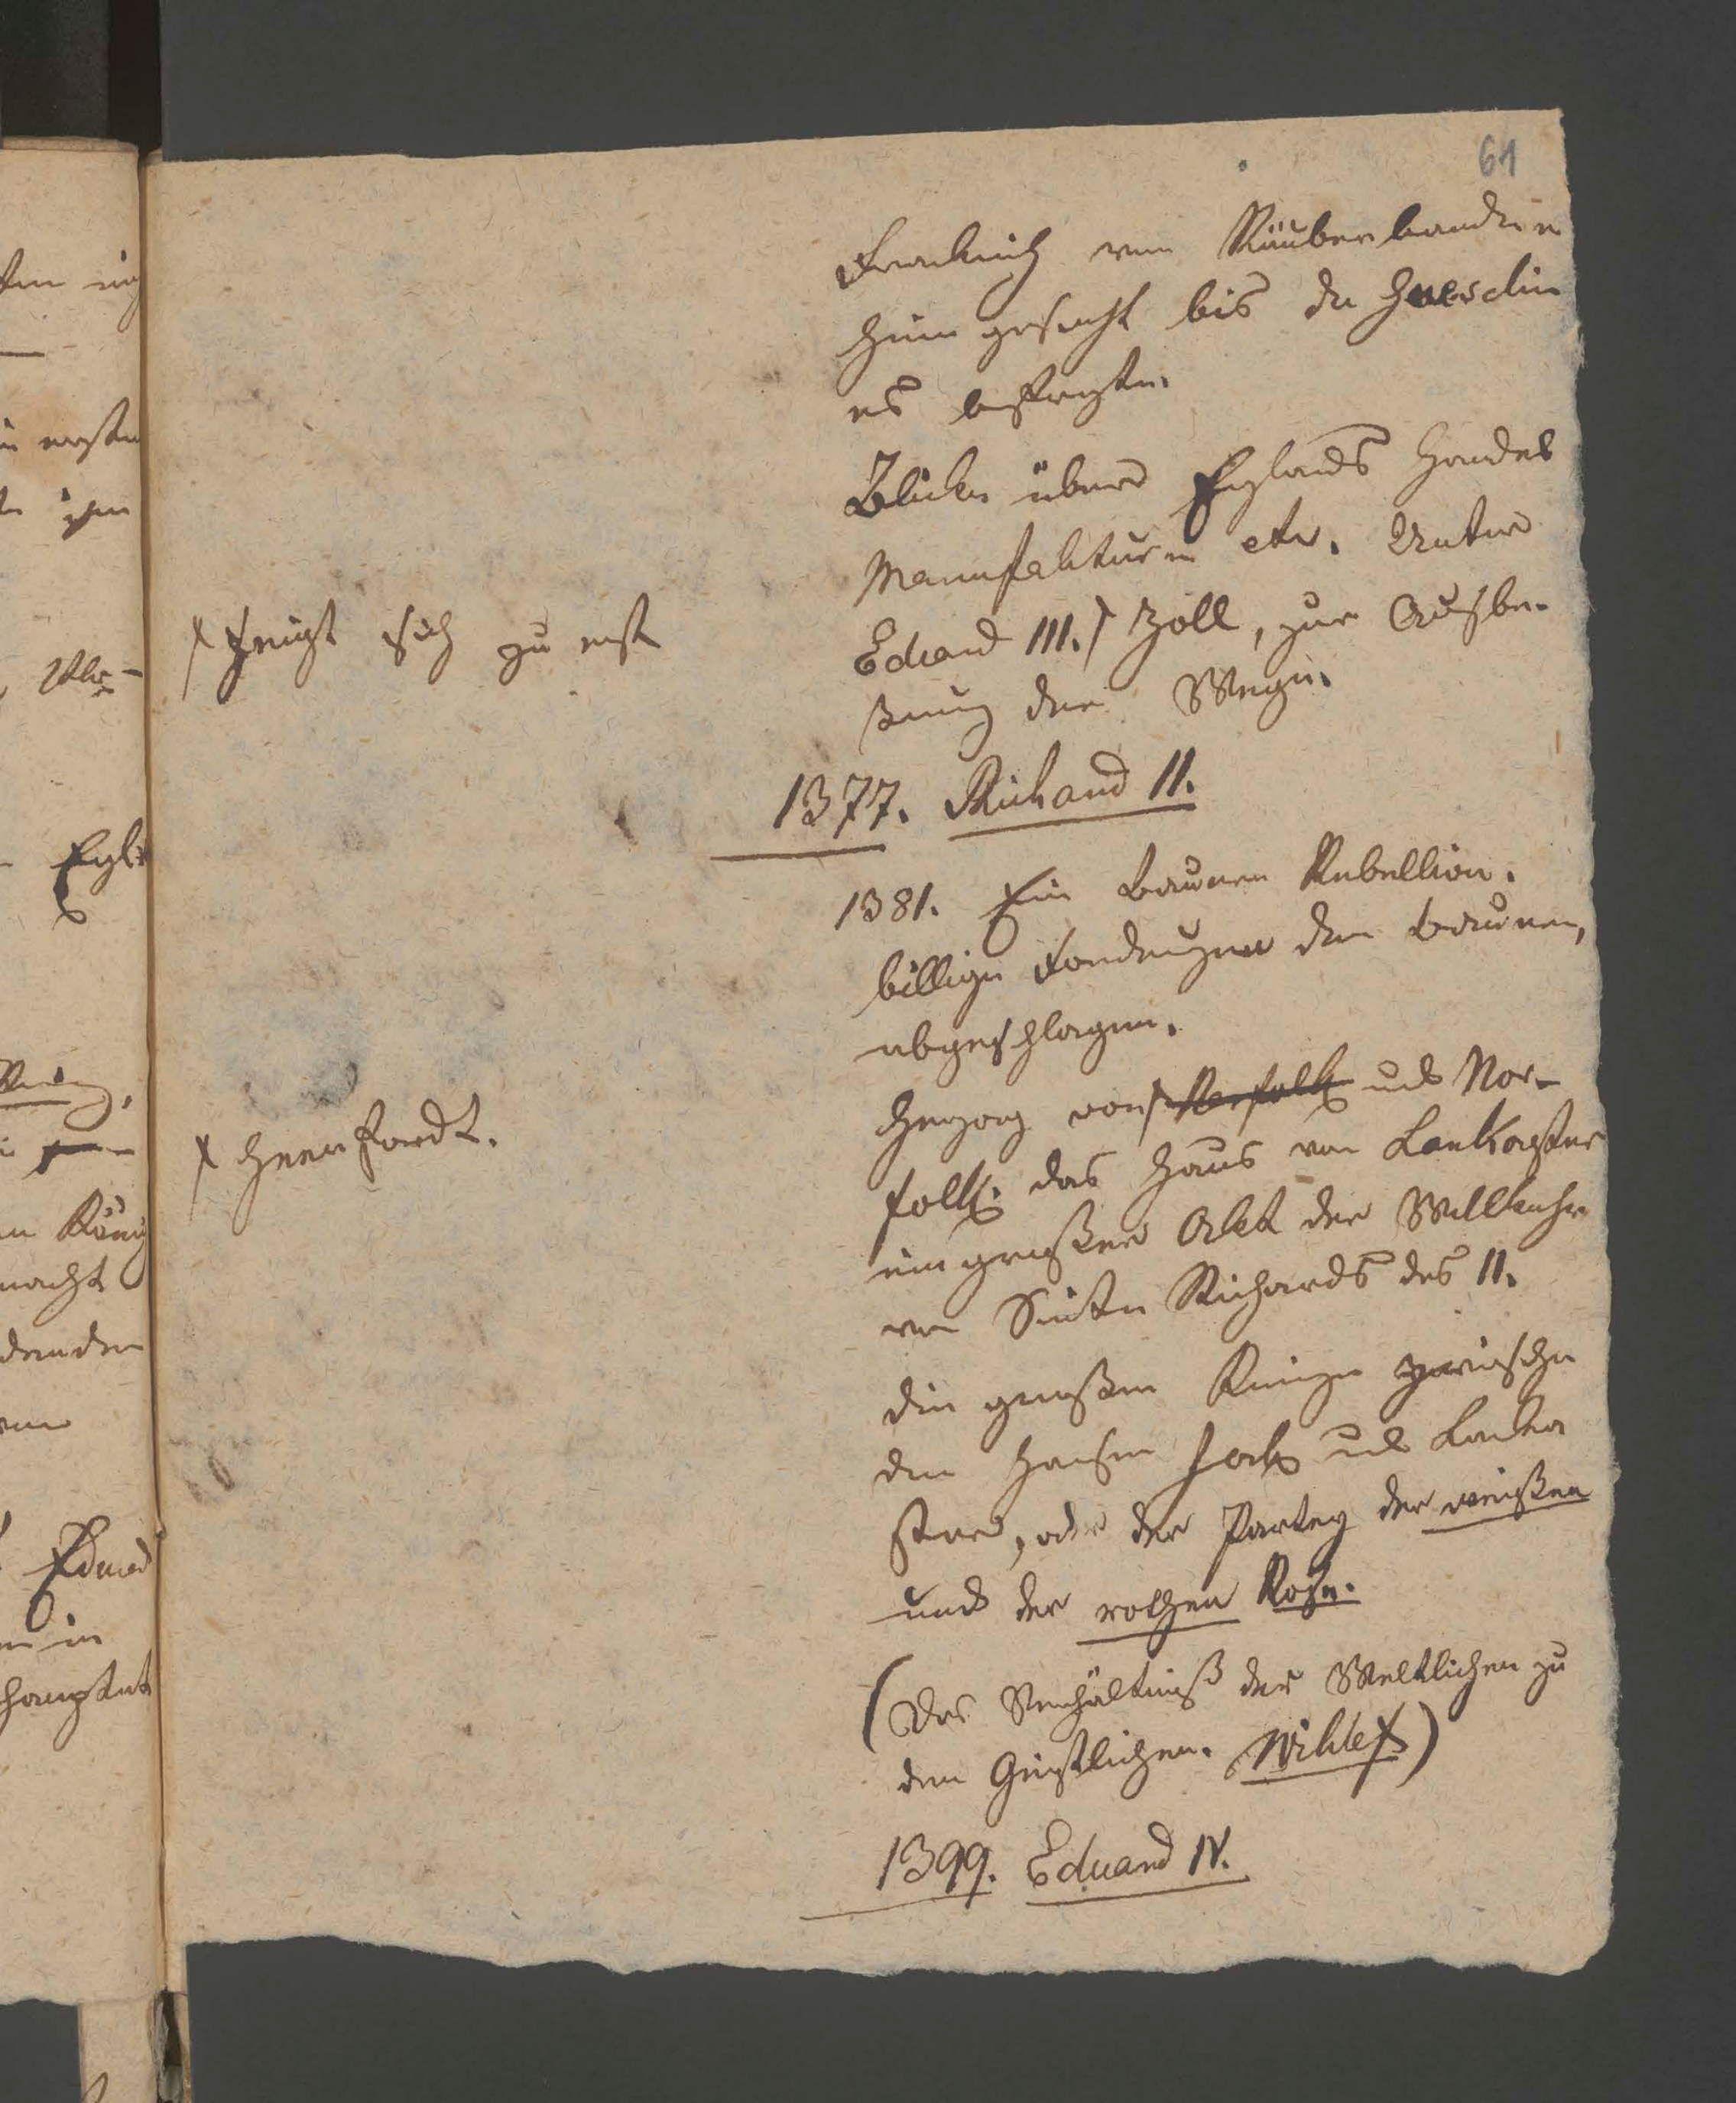 61
Frankreich von Räuberbanden
heim gesucht bis du Guesclin
es befreyte.
Blicke über Englands Handel
Manufakturen etc. Unter
Eduard III. ⨍ Zoll, zur Ausbe-
ßerung der Wege.
⨍ zeigt sich zu erst
1377. Richard II.
1381. Ein Bauern Rebellion.
billige Forderungen der Bauern,
abgeschlagen.
Herzog von ⨍ Norfolk und Nor-
folk. das Haus von Lankaster
ein großer Akt der Willkuhr
von Seiten Richards des II.
⨍ Heerfordt.
die großen Kriege zwischen
den Häusern York und Lanka
ster, oder der Partey der weißen
und der rothen Rose.
(Das Verhältniß der Weltlichen zu
den Geistlichen. Wiklef)
1399. Eduard IV.